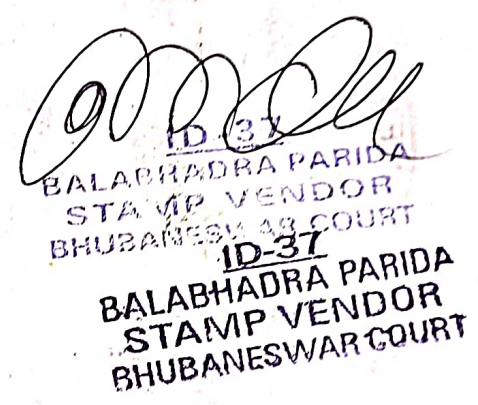 ID-37
BALABHADRA PARIDA
STAMP VENDOR
BHUBANESWAR COURT
ID-37
BALABHADRA PARIDA
STAMP VENDOR
BHUBANESWAR COURT